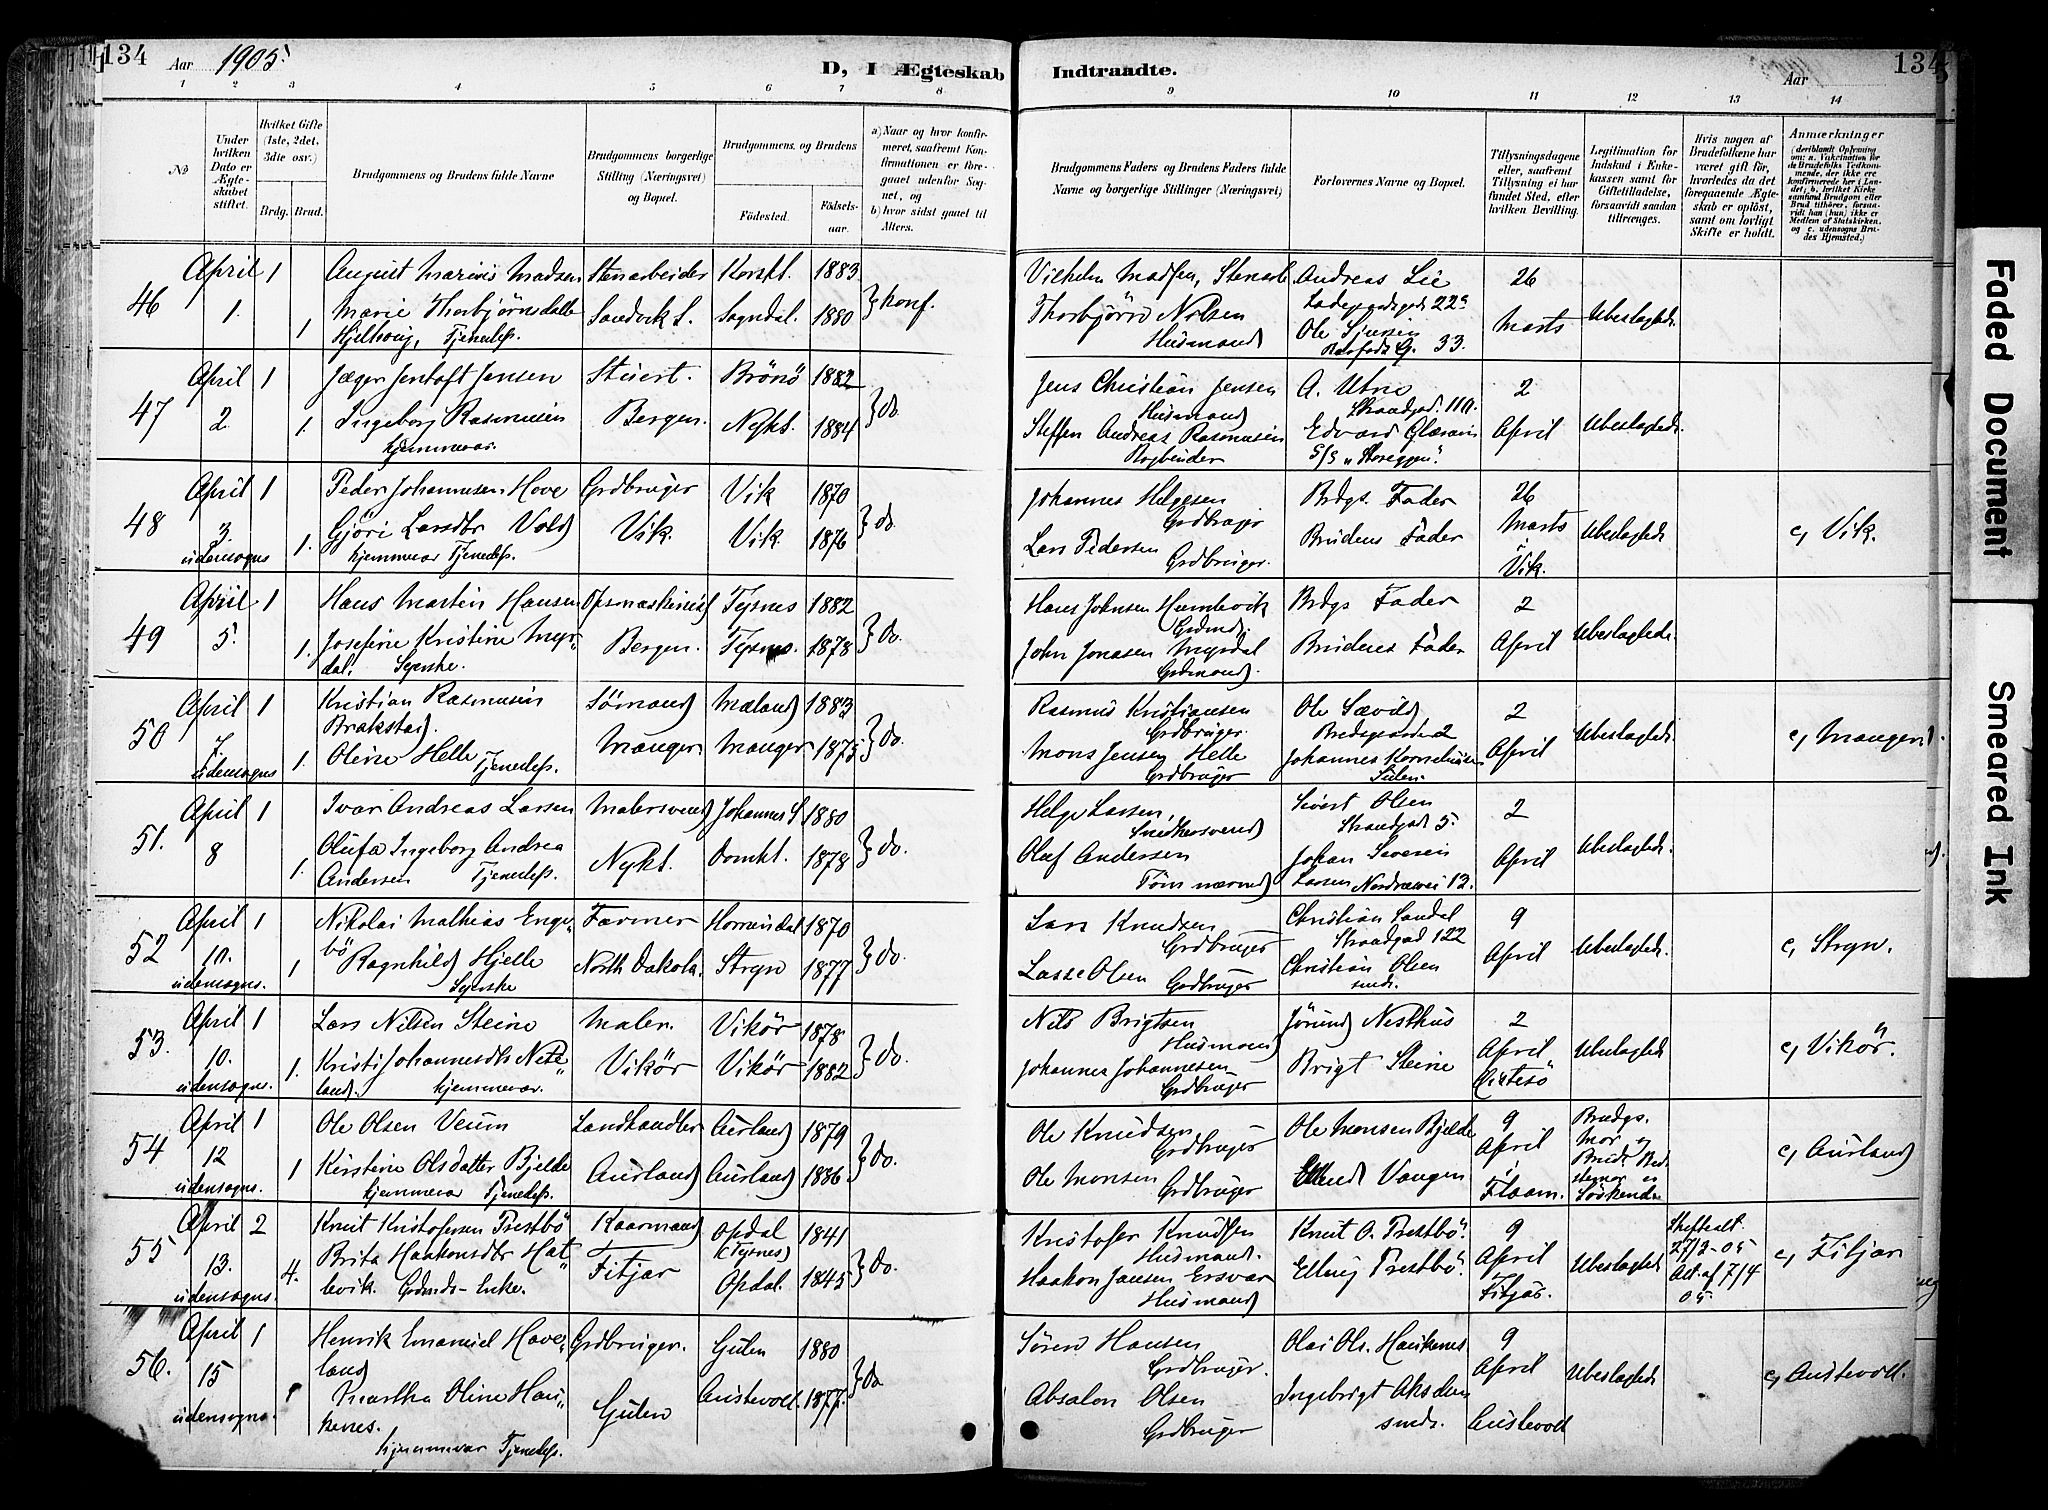 134 Aar 1905.
D, I Ægteskab Indtraadte.
Aar 134
1 2 3 4 5 6 7 8 9 10 11 12 13 14
No
Under hvilken Dato er Ægteskabet stiftet.
Hvilket Gifte (1ste, 2det, 3die osv.)
Brdg. Brud.
Brudgommens og Brudens fulde Navne
Brudgommens borgerlige Stilling (Næringsvei) og Bopæl.
Brudgommens og Brudens
Födested.
Födsels-aar.
a) Naar og hvor konfirmeret, saafremt Konfirmationen er foregaaet udenfor Sognet, og
b) hvor sidst gaaet til Alters.
Brudgommens Faders og Brudens Faders fulde Navne og borgerlige Stillinger (Næringsvei)
Forlovernes Navne og Bopæl.
Tillysningsdagene eller, saafremt Tillysning ei har fundet Sted, efter hvilken Bevilling.
Legitimation for Indskud i Enkekassen samt for Giftetilladelse, forsaavidt saadan tiltrænges.
Hvis nogen af Brudefolkene har været gift før, hvorledes da det foregaaende Ægteskab er oplöst, samt om lovligt Skifte er holdt.
Anmærkninger (deriblandt Oplysning om: a. Vakcination for de Brudefolks Vedkommende, der ikke ere konfirmerede her i Landet; b. hvilket Kirkesamfund Brudgom eller Brud tilhörer, forsaavidt han (hun) ikke er Medlem af Statskirken, og c. udensogns Brudes Hjemsted.)
46 April 1. 1 August Marius Madsen Stenarbeider Korskt. 1883 } konf. Vilhelm Madsen, Stenarb. Andreas Lie 26
1. Marie Thorbjørnsdatter Sandvik S. Sogndal. 1880 Thorbjörn Nilsen Husmand Ladegaardsgd. 22a Marts Ubeslægtede
Tjenestep. Ole 33.
47 April 2. 1 Jæger Jentoft Jensen Stuert. Brönö 1882 } do. Jens Christian Jensen Husmand A. Utne Strandgd. 11a. 2
1. Ingeborg Rasmussen hjemmevær. Bergen. Nykt. 1884 Steffen Andreas Rasmussen Bogbinder Edvard S/S "Storeggen". April Ubeslægtede
48 April 3. udensogns 1 Peder Johannesen Hove Grdbruger Vik 1870 } do. Johannes Helgesen Grdbruger Brdgs. Fader 26
1. Gjöri Larsdtr Vold hjemmevær Tjenestep. Vik. Vik. 1876 Lars Pedersen Grdbruger. Brudens Fader Marts i Vik. Ubeslægtede c, Vik.
49 April 5. 1 Hans Martin Hansen Opsmaskinist Tysnes 1882 } do. Hans Johnsen Humlevik Grdmd. Brdgs Fader 2
1. Josefine Kristine Myrdal. Syerske. Bergen. Tysnes. 1878 John Jonasen Myrdal Grdmand. Brudens Fader April Ubeslægtede
50 April 7. udensogns 1 Kristian Rasmussen Brakstad. Sømand Mæland 1883 } do. Rasmus Kristiansen Grdbruger. Ole Sævild Bredsgaarden 2 2
1. Oline Helle Tjenestep. Manger. Manger 1875 Mons Jensen Helle Grdbruger Johannes Korneliusen April Ubeslægtede c, Manger.
51. April 8 1 Ivar Andreas Larsen Malersvend Johannes S. 1880 } do. Helge Larsen, Snedkersvend Sivert Olsen Strandgad 5. 2
1. Olufa Ingeborg Andrea Andersen Tjenestep. Nykt. Domkt. 1878 Oluf Andersen Tømmermand Johan Severin Larsen 13. April Ubeslægtede
52 April 10. udensogns. 1 Nikolai Mathias Engebö Farmer Hornindal 1870 } do. Lars Knudsen Grdbruger Christian Sandal Strandgad 122 9
1 Ragnhild Hjelle Syerske North Dakota. Stryn 1877 Lasse Olsen Grdbruger Christian Olsen smds. April Ubeslægtede c, Stryn.
53. April 10. udensogns. 1 Lars Nilsen Steine Maler. Vikör 1878 } do. Nils Brigtsen Husmand Jørund Nesthus 2
1. Kristi Johannesdtr. Neteland. hjemmevær. Vikör Vikör 1882 Johannes Johannesen Grdbruger Brigt Steine April Ubeslægtede c, Vikör.
54 April 12 udensogns. 1 Ole Olsen Veum Landhandler Aurland 1879 } do. Ole Knudsen Grdbruger Ole Monsen Bjelde 9
1 Kirstine Olsdatter Bjelde hjemmevær Tjenestep. Aurland Aurland 1886 Ole Monsen Grdbruger Vangen April i Flaam. Brudgs. Mor og Bruds Bedstemor er Söskende c, Aurland
55 April 13. udensogns. 2 Knut Kristofersen Prestbö Kaarmand Opdal (Tysnes) 1841 } do. Kristofer Knudsen Husmand. Knut O. Prestbö. 9
4. Brita Haakonsdtr Hatlevik. Grdmds-Enke. Fitjar Opdal. 1845 Haakon Jansen Ersvær Husmand Elling Prestbö. April Fitjar. Ubeslægtede Skifteatt. 27/3-05 Att. af 7/4 05. c, Fitjar
56. April 15 udensogns. 1 Henrik Emanuel Haveland Grdbruger. Gulen 1880 } do Sören Hansen Grdbruger. Olai Ols. Haukenes 9
1 Martha Oline Haukenes. hjemmevær Tjenestep. Gulen Austevold. 1877. Absalon Olsen Grdbruger Ingebrigt smds. April Austevold Ubeslægtede c, Austevoll.
Faded Document
Smeared Ink